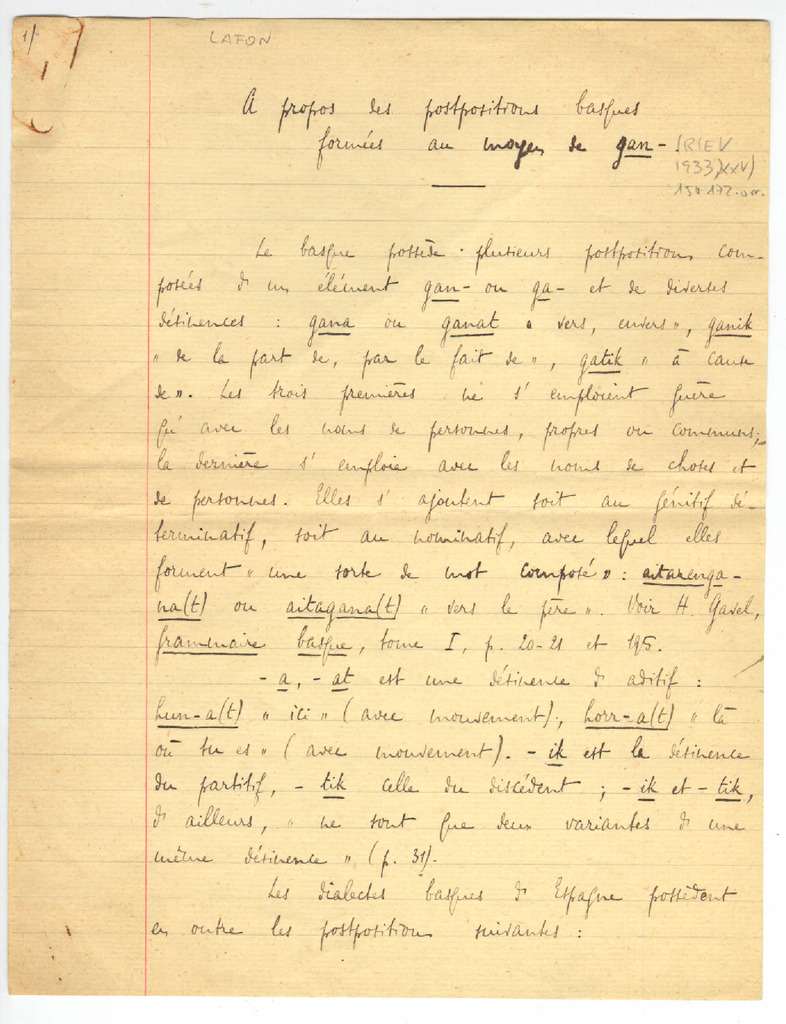 1/
LAFON
A propos des postpositions basques
formées au moyen de gan-
(RIEV
1933, XXIV)
150-172. orr.
Le basque possède plusieurs postpositions com-
posées d'un élément gan- ou ga- et de diverses
désinences : gana ou ganat « vers, envers », ganik
« de la part de, par le fait de », gatik « à cause
de ». Les trois premières ne s'emploient guère
qu'avec les noms de personnes, propres ou communs;
la dernière s'emploie avec les noms de choses et
de personnes. Elles s'ajoutent soit au génitif dé-
terminatif, soit au nominatif, avec lequel elles
forment « une sorte de mot composé » : aitarenga-
na(t) ou aitagana(t) « vers le père ». Voir H. Gavel,
Grammaire basque, tome I, p. 20-21 et 195.
- a, - at est une désinence d'aditif :
hun-a(t) « ici » (avec mouvement), horr-a(t) « là
où tu es » (avec mouvement). - ik est la désinence
du partitif, - tik celle du discédent ; - ik et - tik,
d'ailleurs, « ne sont que deux variantes d'une
même désinence » (p. 31).
Les dialectes basques d'Espagne possèdent
en outre les postpositions suivantes :